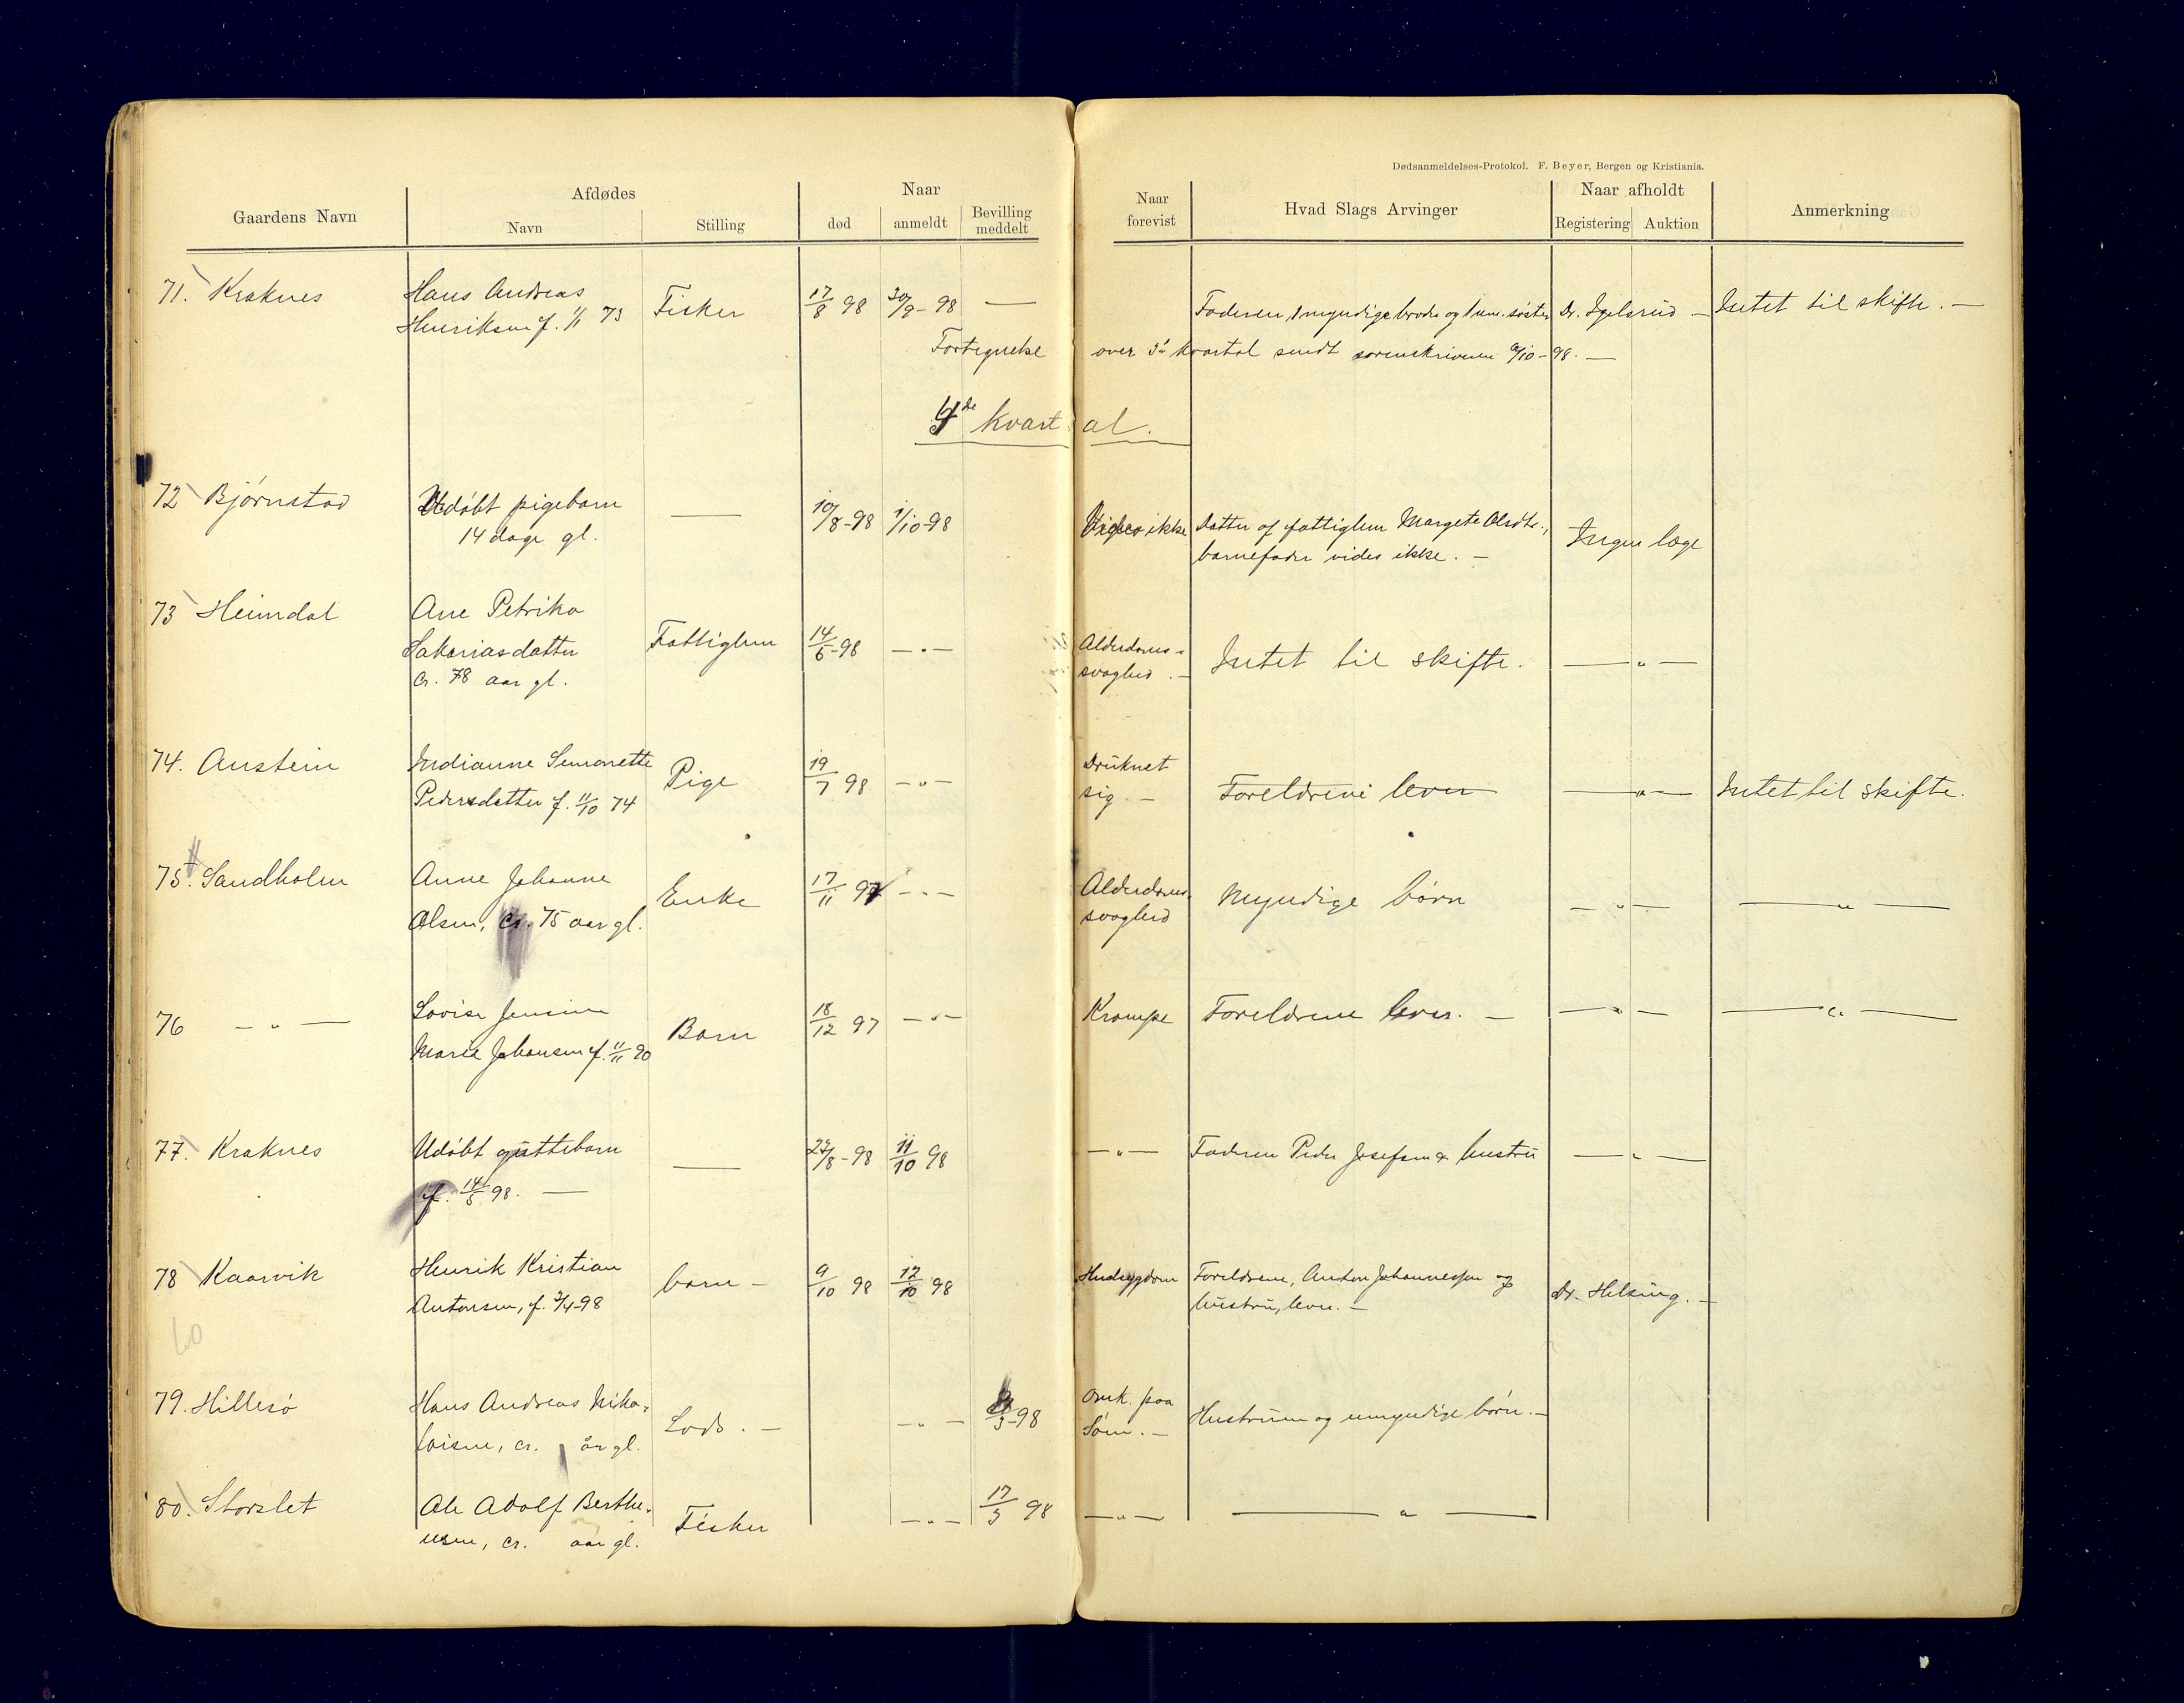 Dødsanmeldelses-Protokol. F. Beyer, Bergen og Kristiania.
Gaardens Navn
Afdødes
Navn
Stilling
Naar
død
anmeldt
Bevilling meddelt
Naar forevist
Hvad Slags Arvinger
Naar afholdt
Registering
Auktion
Anmerkning
71. Kraknes
Hans Andreas
Henriksen f. 1/1 73
Fisker
17/8 98
30/9-98
—
Faderen, 1 myndige broder og 1 um. søster
Dr. Igelsrud —
Intet til skifte. —
Fortegnelse over 3' kvartal sendt sorenskriveren /10-98. —
4de kvartal.
72 Bjørnstad
Udøbt pigebarn
14 dage gl.
—
10/8-98
1/10-98
Vides ikke
Datter af fattiglem Margete Olsdtr.,
barnefader vides ikke. —
Ingen læge
73 Heimdal
Ane Petrika
Sakariasdatter
cr. 78 aar gl.
Fattiglem
14/6-98
— " —
Alderdoms-
svaghed. —
Intet til skifte.
— " —
74. Austein
Indianne Simonette
Pedersdatter f. 11/10 74
Pige
19/7 98
— " —
Druknet
sig. —
Foreldrene lever
— " —
Intet til skifte.
75. Sandholm
Anne Johanne
Olsen, cr. 75 aar gl.
Enke
17/11 97
— " —
Alderdoms-
svaghed
Myndige børn
— " —
— " —
76 — " —
Lovise Jensine
Marie Johansen f. 11/11 90
Barn
18/12 97
— " —
Krampe
Foreldrene lever. —
— " —
— " —
77. Kraknes
Udøbt guttebarn
f. 14/5 98. —
—
22/8-98
11/10 98
— " —
Faderen Peder Josefsen & hustru
— " —
78 Kaarvik
Henrik Kristian
Antonsen, f. 3/4-98
barn —
9/10 98
12/10 98
Hudsygdom
Foreldrene, Anton Johannessen og
hustru, lever. —
Dr. Helsing. —
60
79. Hillesø
Hans Andreas Niko-
laisen, cr. år gl.
Lods. —
— " —
/3-98
Omk. paa
Søen. —
Hustruen og umyndige børn. —
80. Storslet
Ole Adolf Berthe-
usen, cr. aar gl.
Fisker
— " —
17/3 98
— " —
— " —